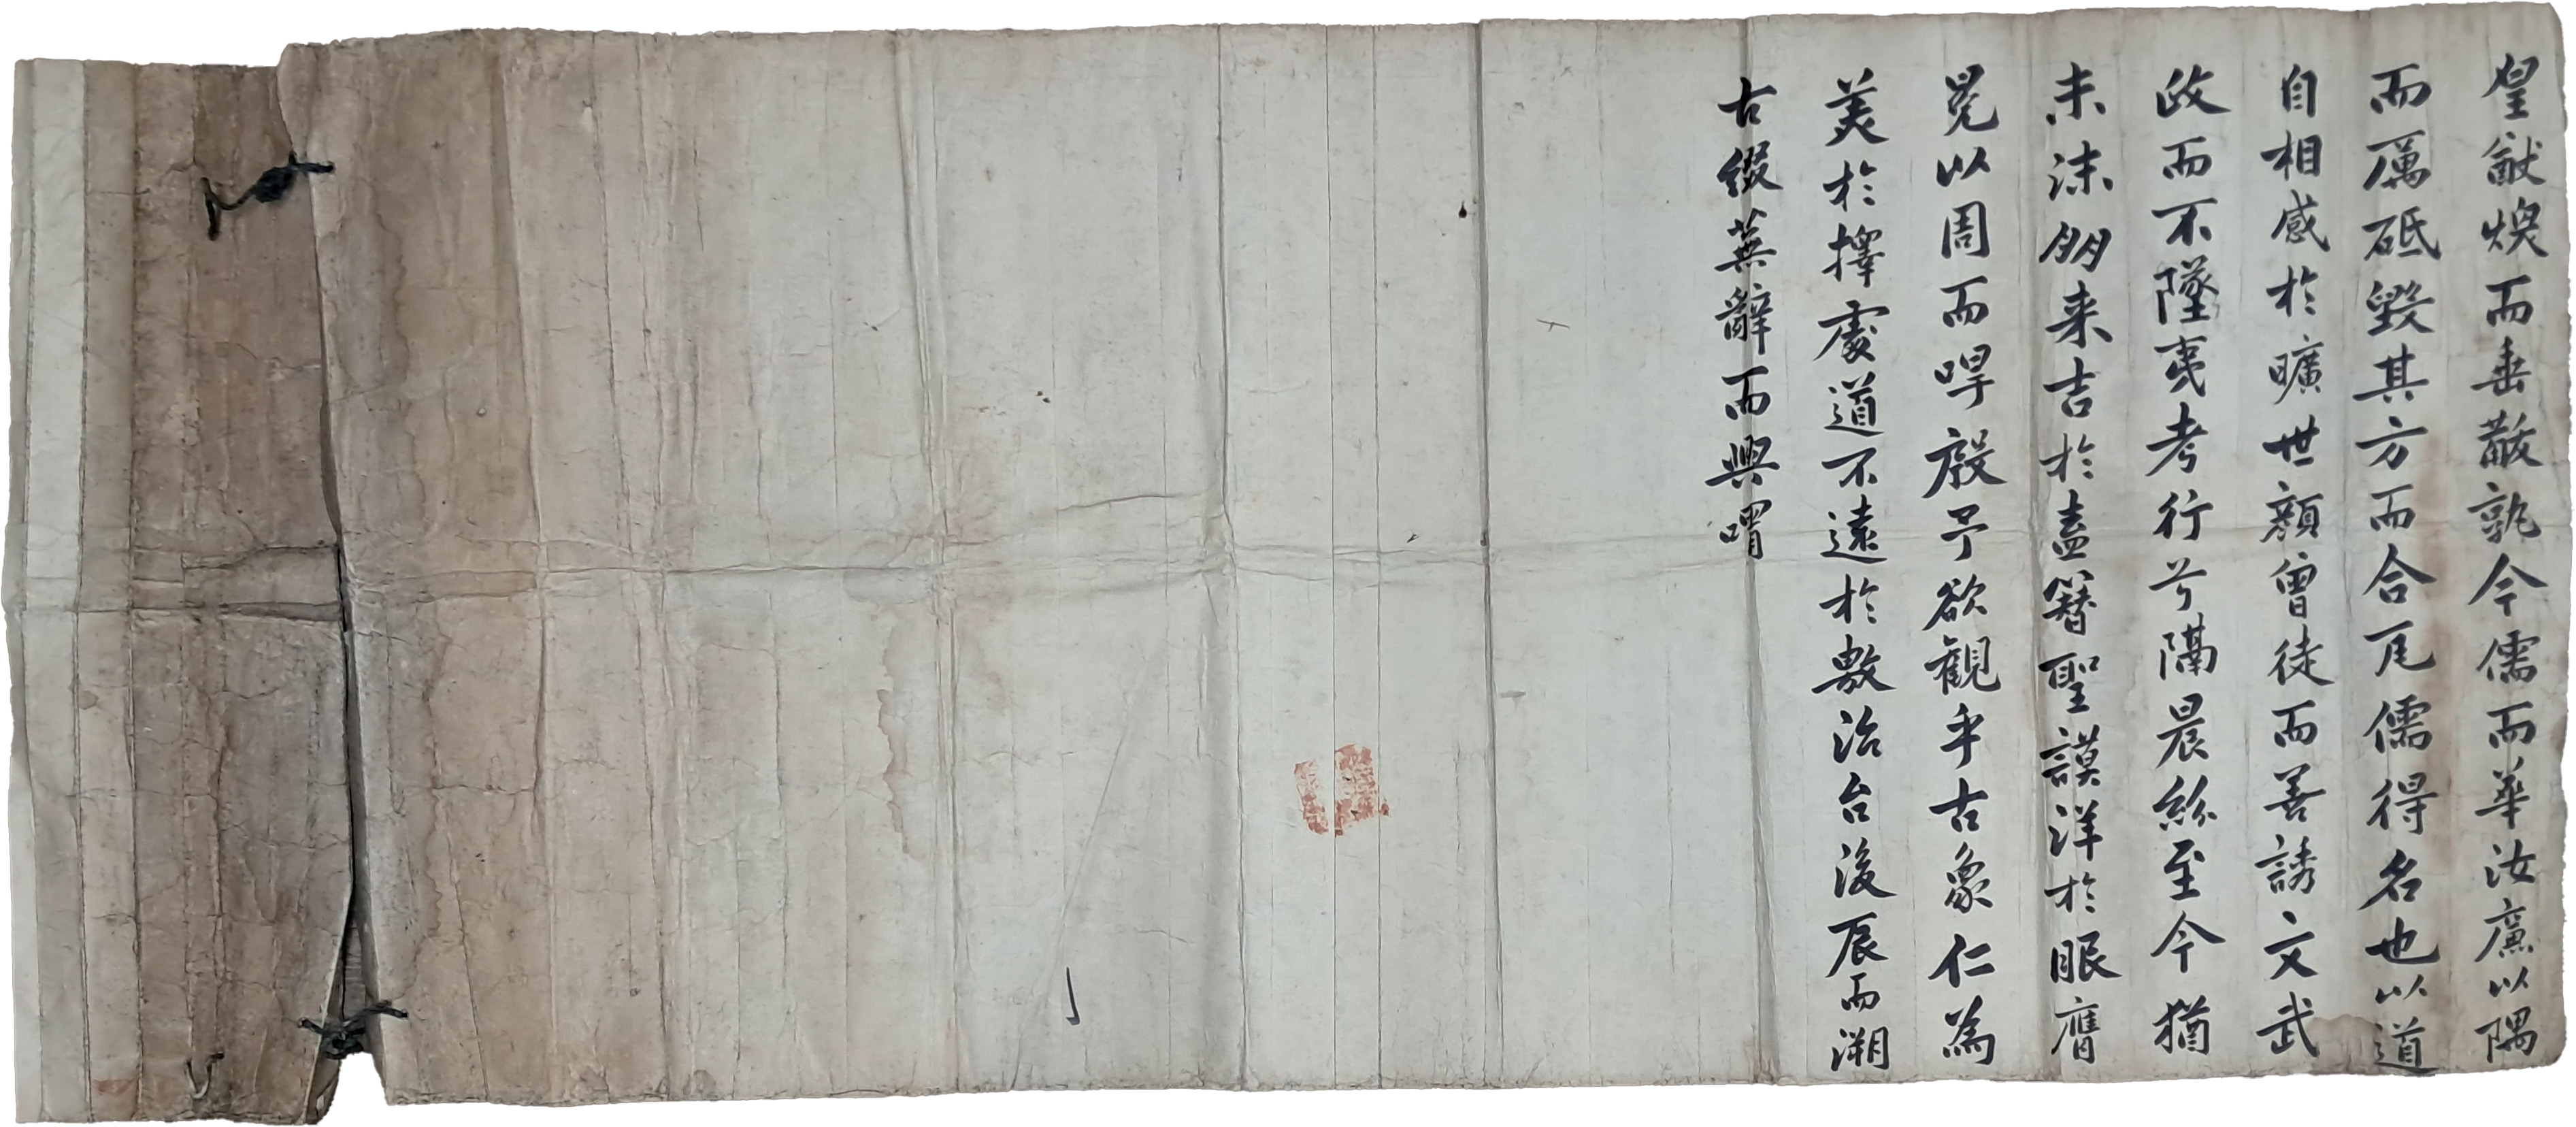 皇猷煥而垂散孰今儒而華汝廉以隅
而厲砥毀其方而合瓦儒得名也以道
自相感於曠世顔曾徒而善誘文武
政而不墜夷考行兮隔晨絲至今猶
未沫朋来吉於盍簪聖謨洋於眼膺
冕以周而哻殷予欲觀乎古象仁為
美於擇處道不遠於敷治台後辰而溯
古綴蕪辭而興喟